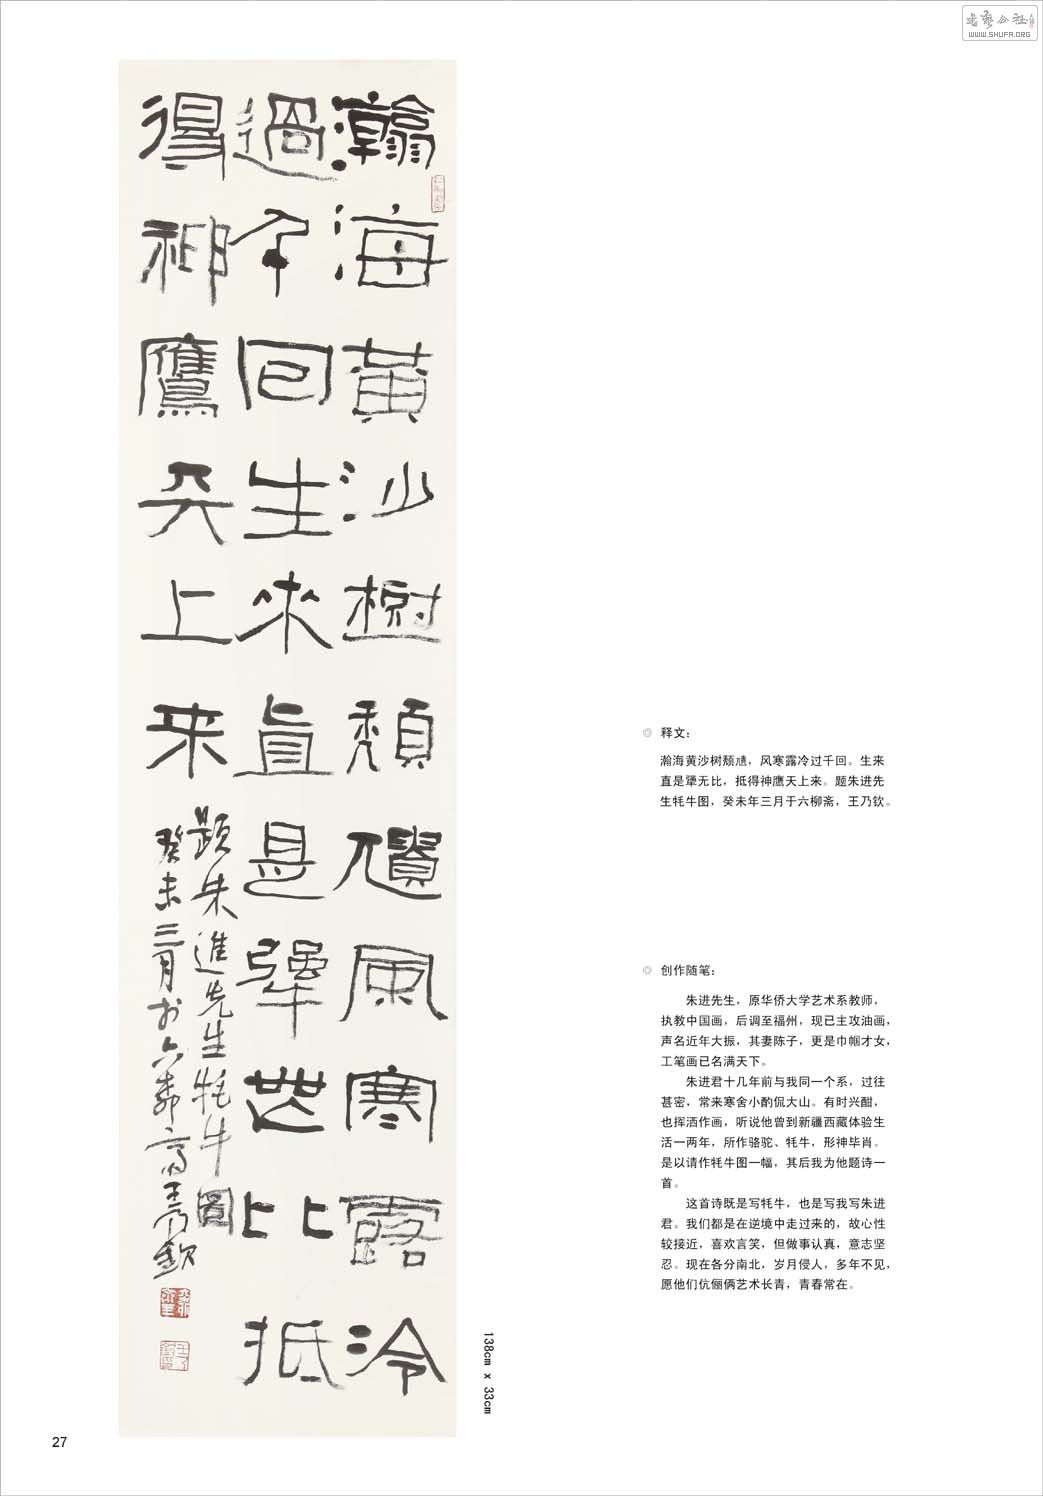 书艺公社
WWW.SHUFA.ORG
瀚海黄沙樹頹尵風寒露冷
過千回生來直是犟無比抵
得神鷹天上來
題朱進先生牦牛圖
癸未三月於六柳斋王乃欽
138cm x 33cm
◎ 释文：
瀚海黄沙树颓尵，风寒露冷过千回。生来
直是犟无比，抵得神鹰天上来。题朱进先
生牦牛图，癸未年三月于六柳斋，王乃钦。
◎ 创作随笔：
朱进先生，原华侨大学艺术系教师，
执教中国画，后调至福州，现已主攻油画，
声名近年大振，其妻陈子，更是巾帼才女，
工笔画已名满天下。
朱进君十几年前与我同一个系，过往
甚密，常来寒舍小酌侃大山。有时兴酣，
也挥洒作画，听说他曾到新疆西藏体验生
活一两年，所作骆驼、牦牛，形神毕肖。
是以请作牦牛图一幅，其后我为他题诗一
首。
这首诗既是写牦牛，也是写我写朱进
君。我们都是在逆境中走过来的，故心性
较接近，喜欢言笑，但做事认真，意志坚
忍。现在各分南北，岁月侵人，多年不见，
愿他们伉俪俩艺术长青，青春常在。
27